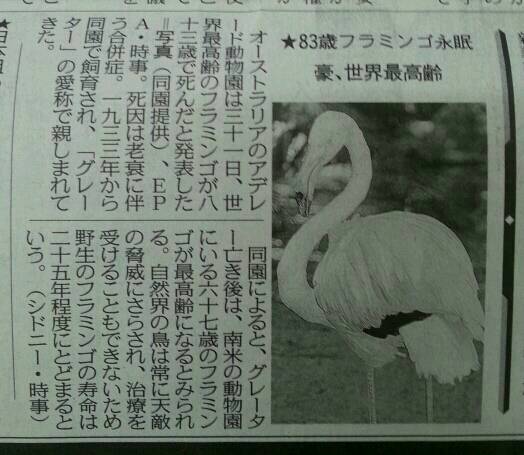 ★83歳フラミンゴ永眠
豪、世界最高齢
オーストラリアのアデレ
ード動物園は三十一日、世
界最高齢のフラミンゴが八
十三歳で死んだと発表した
＝写真（同園提供）、ＥＰ
Ａ・時事。死因は老衰に伴
う合併症。一九三三年から
同園で飼育され、「グレー
ター」の愛称で親しまれて
きた。
同園によると、グレータ
ー亡き後は、南米の動物園
にいる六十七歳のフラミン
ゴが最高齢になるとみられ
る。自然界の鳥は常に天敵
の脅威にさらされ、治療を
受けることもできないため
野生のフラミンゴの寿命は
二十五年程度にとどまると
いう。（シドニー・時事）